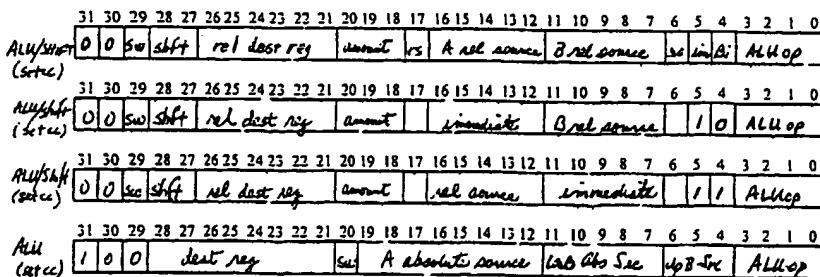 31 30 29 28 27 26 25 24 23 22 21 20 19 18 17 16 15 14 13 12 11 10 9 8 7 6 5 4 3 2 1 0
ALU/Shift 0 0 sw shft rel dest reg amount rs A rel source B rel source sc im Bi ALU op
(setcc)
31 30 29 28 27 26 25 24 23 22 21 20 19 18 17 16 15 14 13 12 11 10 9 8 7 6 5 4 3 2 1 0
ALU/Shft 0 0 sw shft rel dest reg amount immediate B rel source 1 0 ALU op
(setcc)
31 30 29 28 27 26 25 24 23 22 21 20 19 18 17 16 15 14 13 12 11 10 9 8 7 6 5 4 3 2 1 0
ALU/Shft 0 0 shft rel dest reg amount rel source immediate 1 1 ALU op
(setcc)
31 30 29 28 27 26 25 24 23 22 21 20 19 18 17 16 15 14 13 12 11 10 9 8 7 6 5 4 3 2 1 0
ALU 1 0 0 dest reg sw A absolute source B Abs Src ALU op
(setcc)